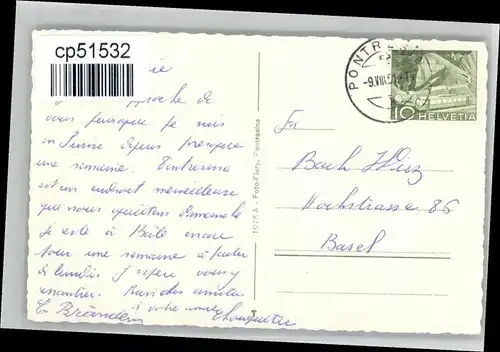 cp51532
je m'approche de
vous puisque je suis
en Suisse depuis presque
une semaine. Pontresina
est un endroit merveilleux
que nous quittons dimanche
je reste à Bâle encore
pour une semaine à partir
de lundi. J'espère vous y
rencontrer. Bien des amitiés
à votre
E. Brändlin
10784 - Foto-Flury, Pontresina
PONTRESINA
-9.VIII.5
10 HELVETIA
Bach Wuz
Hochstrasse 86
Basel